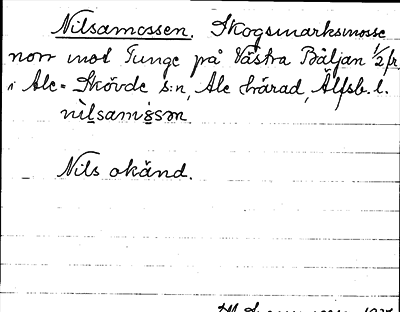 Nilsamossen. Skogsmarksmosse
norr mot Tunge på Västra Båljan 1/2 fr.
i Ale-Skövde s:n, Ale härad, Älfsb. l.
nìlsamåsən
Nils okänd.